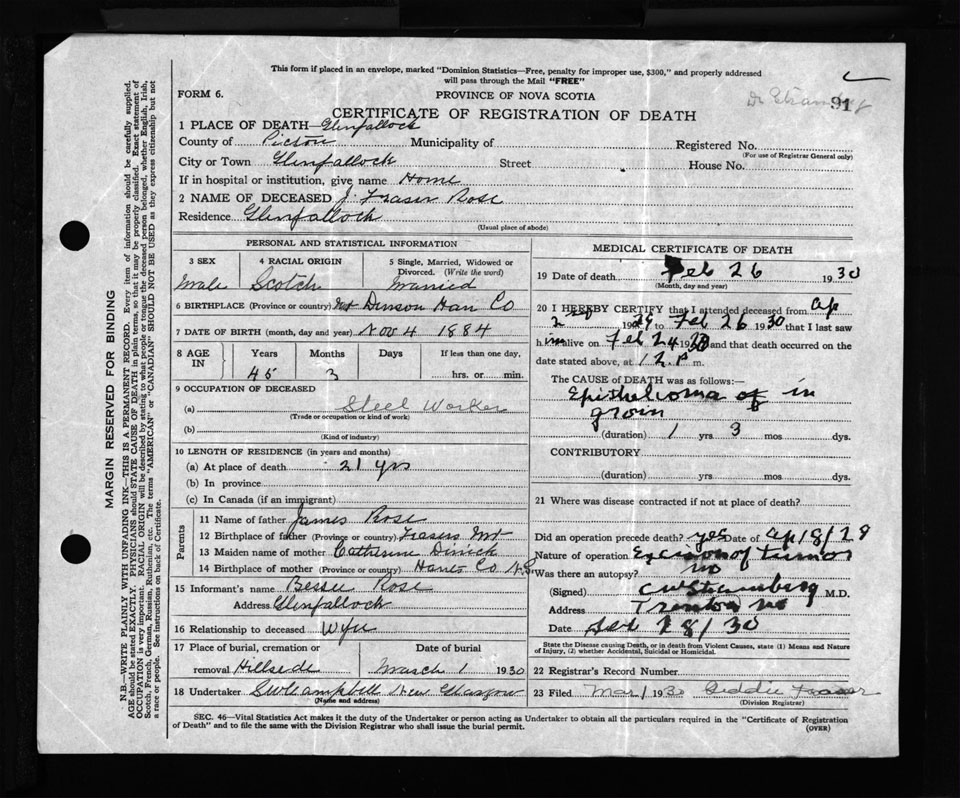 This form if placed in an envelope, marked "Dominion Statistics—Free, penalty for improper use, $300," and properly addressed
will pass through the Mail "FREE"
FORM 6.
PROVINCE OF NOVA SCOTIA
91
CERTIFICATE OF REGISTRATION OF DEATH
1 PLACE OF DEATH—Glenfallock
County of Pictou Municipality of Registered No.
(For use of Registrar General only)
City or Town Glenfallock Street House No.
If in hospital or institution, give name Home
2 NAME OF DECEASED J. Fraser Rose
Residence Glenfallock
(Usual place of abode)
MARGIN RESERVED FOR BINDING
N.B.—WRITE PLAINLY WITH UNFADING INK—THIS IS A PERMANENT RECORD. Every item of information should be carefully supplied.
AGE should be stated EXACTLY. PHYSICIANS should STATE CAUSE OF DEATH in plain terms, so that it may be properly classified. Exact statement of
OCCUPATION is very important. RACIAL ORIGIN will be described by stating to what people or tongue the deceased person belonged, whether English, Irish,
Scotch, French, German, Russian, Ruthenian, etc. The terms "AMERICAN" or "CANADIAN" SHOULD NOT BE USED as they express citizenship but not
a race or people. See instructions on back of Certificate.
PERSONAL AND STATISTICAL INFORMATION
3 SEX 4 RACIAL ORIGIN 5 Single, Married, Widowed or
Divorced. (Write the word)
Male Scotch Married
6 BIRTHPLACE (Province or country) Mt Denson Han Co
7 DATE OF BIRTH (month, day and year) Nov 4 1884
8 AGE IN Years Months Days If less than one day,
45 3 hrs. or min.
9 OCCUPATION OF DECEASED
(a) Steel Worker
(Trade or occupation or kind of work)
(b)
(Kind of industry)
10 LENGTH OF RESIDENCE (in years and months)
(a) At place of death 21 yrs
(b) In province
(c) In Canada (if an immigrant)
Parents
11 Name of father James Rose
12 Birthplace of father (Province or country) Frasers Mt
13 Maiden name of mother Catherine Dimick
14 Birthplace of mother (Province or country) Hants Co N.S.
15 Informant's name Bessie Rose
Address Glenfallock
16 Relationship to deceased Wife
17 Place of burial, cremation or Date of burial
removal Hillside March 1 1930
18 Undertaker Campbell New Glasgow
(Name and address)
MEDICAL CERTIFICATE OF DEATH
19 Date of death Feb 26 1930
(Month, day and year)
20 I HEREBY CERTIFY that I attended deceased from Ap
2nd 1929 to Feb 26 1930 that I last saw
him alive on Feb 24 1930 and that death occurred on the
date stated above, at 12 p m.
The CAUSE of DEATH was as follows:—
Epithelioma of in
groin
(duration) 1 yrs 3 mos dys.
CONTRIBUTORY
(duration) yrs. mos. dys.
21 Where was disease contracted if not at place of death?
Did an operation precede death? yes Date of Ap/8/29
Nature of operation Excision of tumor
Was there an autopsy? no
(Signed) M.D.
Address Trenton NS
Date 28/30
State the Disease causing Death, or in death from Violent Causes, state (1) Means and Nature
of Injury, (2) whether Accidental, Suicidal or Homicidal.
22 Registrar's Record Number
23 Filed Mar 1 1930 Fraser
(Division Registrar)
SEC. 46—Vital Statistics Act makes it the duty of the Undertaker or person acting as Undertaker to obtain all the particulars required in the "Certificate of Registration
of Death" and to file the same with the Division Registrar who shall issue the burial permit.
(OVER)